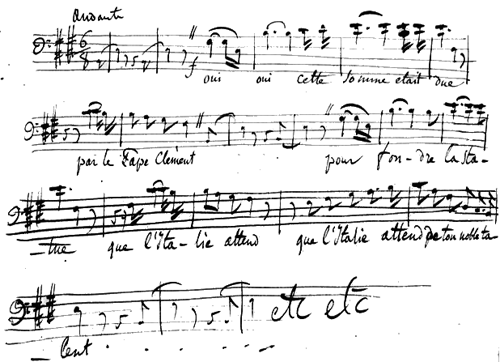 Andante
oui oui cette somme était due
par le Pape Clément pour fon-dre la Sta-
-tue que l'Ita-lie attend que l'Italie attend de ton noble ta-
-lent . . . . . . . etc etc